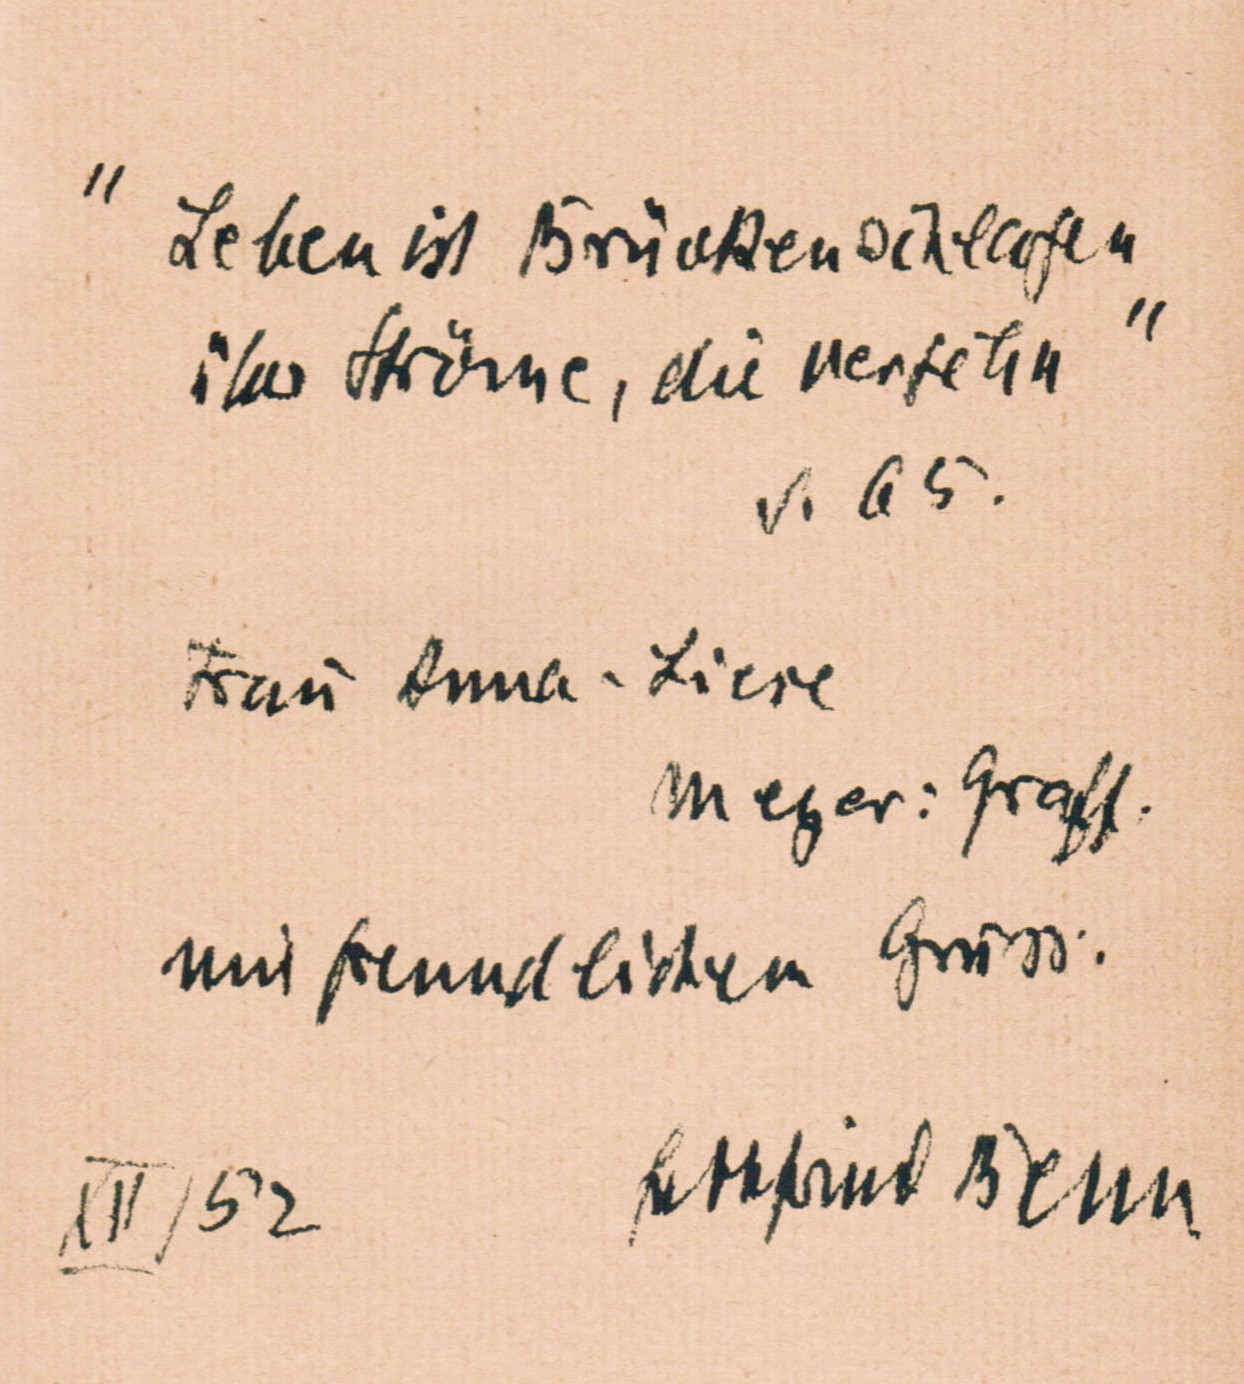 " Leben ist Brückenschlagen
über Ströme, die vergehn "
S. 65.
Frau Anna-Liese
Meyer: Graff.
mit freundlichem Gruss.
XII/52
Gottfried Benn